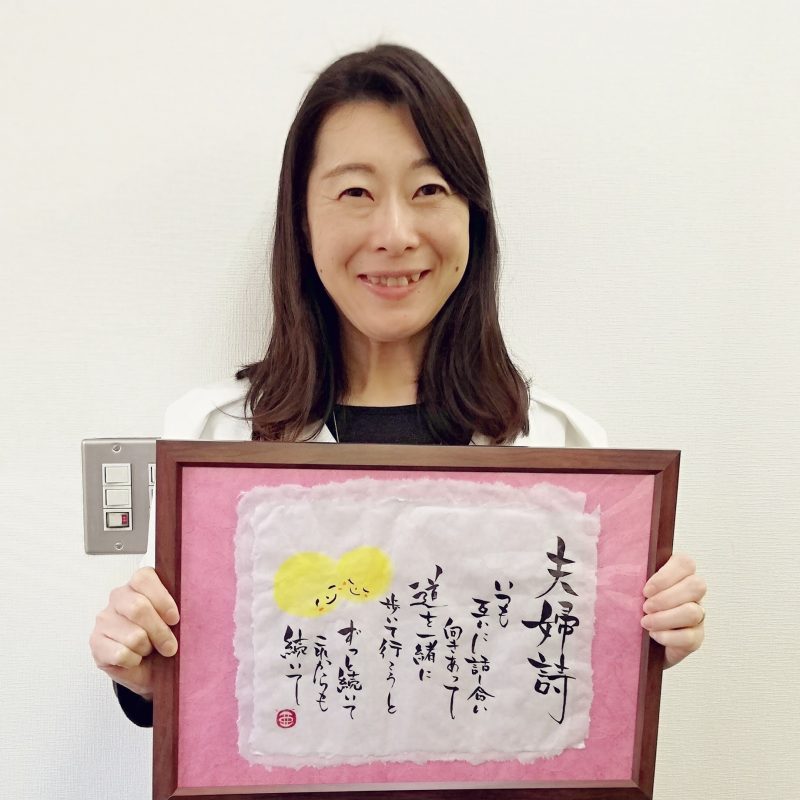 夫婦詩
いつも
互いに話し合い
向きあって
道を一緒に
歩いて行こうと
ずっと続いて
これからも
続いて